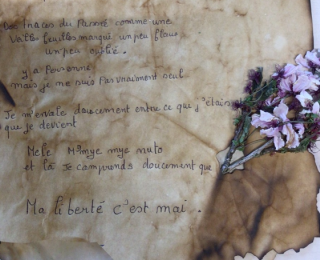 traces du Passé comme une
feuilles marqué un peu flous
un peu oublié.
y a Personne
mais je ne suis Pas vraiment seul
Je m'évade doucement entre ce que j'étais
que je devient
et là Je comprends doucement que
Ma liberté c'est mai.